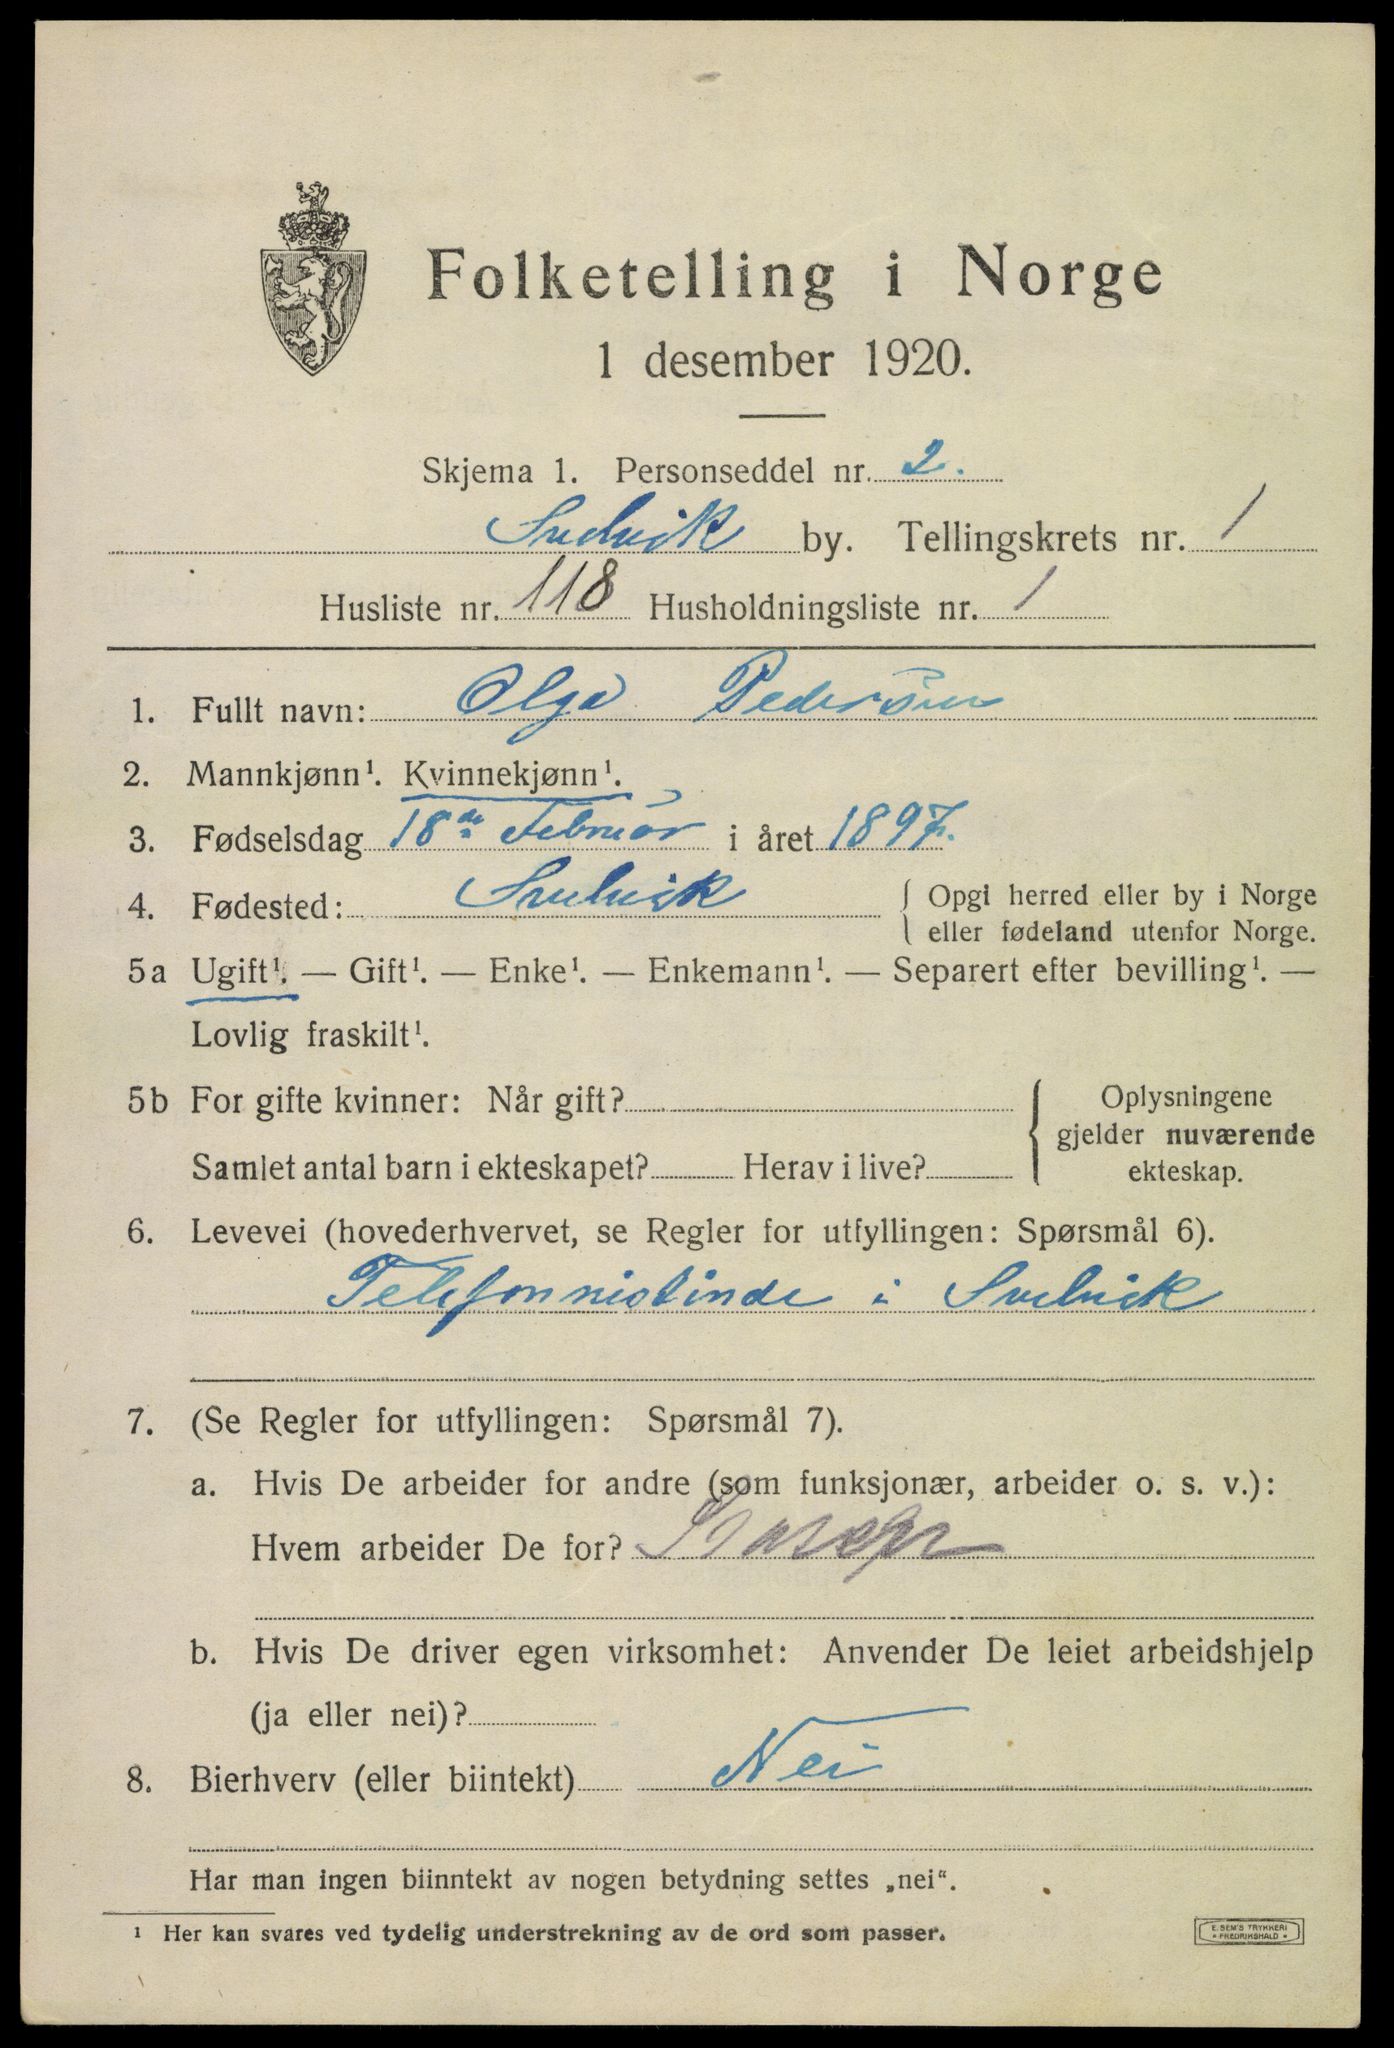 Folketelling i Norge
1 desember 1920.
Skjema 1. Personseddel nr. 2.
Svelvik by. Tellingskrets nr. 1
Husliste nr. 118 Husholdningsliste nr. 1
1. Fullt navn: Olga Pedersen
2. Mannkjønn¹. Kvinnekjønn¹.
3. Fødselsdag 18de Februar i året 1897.
4. Fødested: Svelvik { Opgi herred eller by i Norge
eller fødeland utenfor Norge.
5a Ugift¹. — Gift¹. — Enke¹. — Enkemann¹. — Separert efter bevilling¹. —
Lovlig fraskilt¹.
5b For gifte kvinner: Når gift? { Oplysningene
gjelder nuværende
Samlet antal barn i ekteskapet? Herav i live? ekteskap.
6. Levevei (hovederhvervet, se Regler for utfyllingen: Spørsmål 6).
Telefonnistinde i Svelvik
7. (Se Regler for utfyllingen: Spørsmål 7).
a. Hvis De arbeider for andre (som funksjonær, arbeider o. s. v.):
Hvem arbeider De for?
b. Hvis De driver egen virksomhet: Anvender De leiet arbeidshjelp
(ja eller nei)?
8. Bierhverv (eller biintekt) Nei
Har man ingen biinntekt av nogen betydning settes „nei".
¹ Her kan svares ved tydelig understrekning av de ord som passer.
E. SEM'S TRYKKERI
* FREDRIKSHALD *